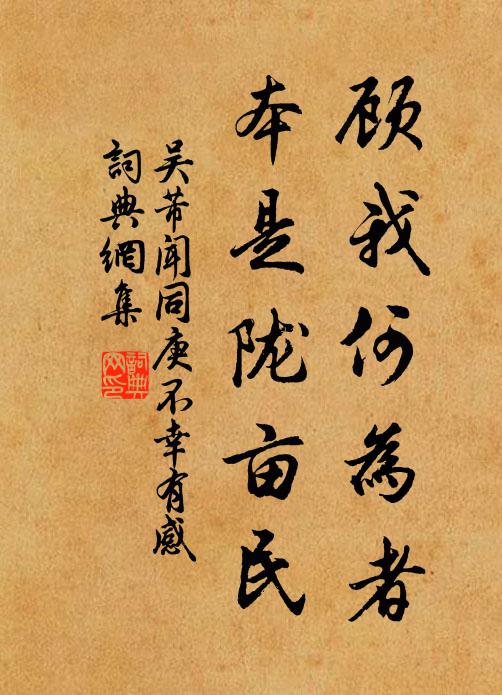 顾我何為者
本是陇亩民
吴芾闻同庚不幸有感
詞典網集
詞典
网印